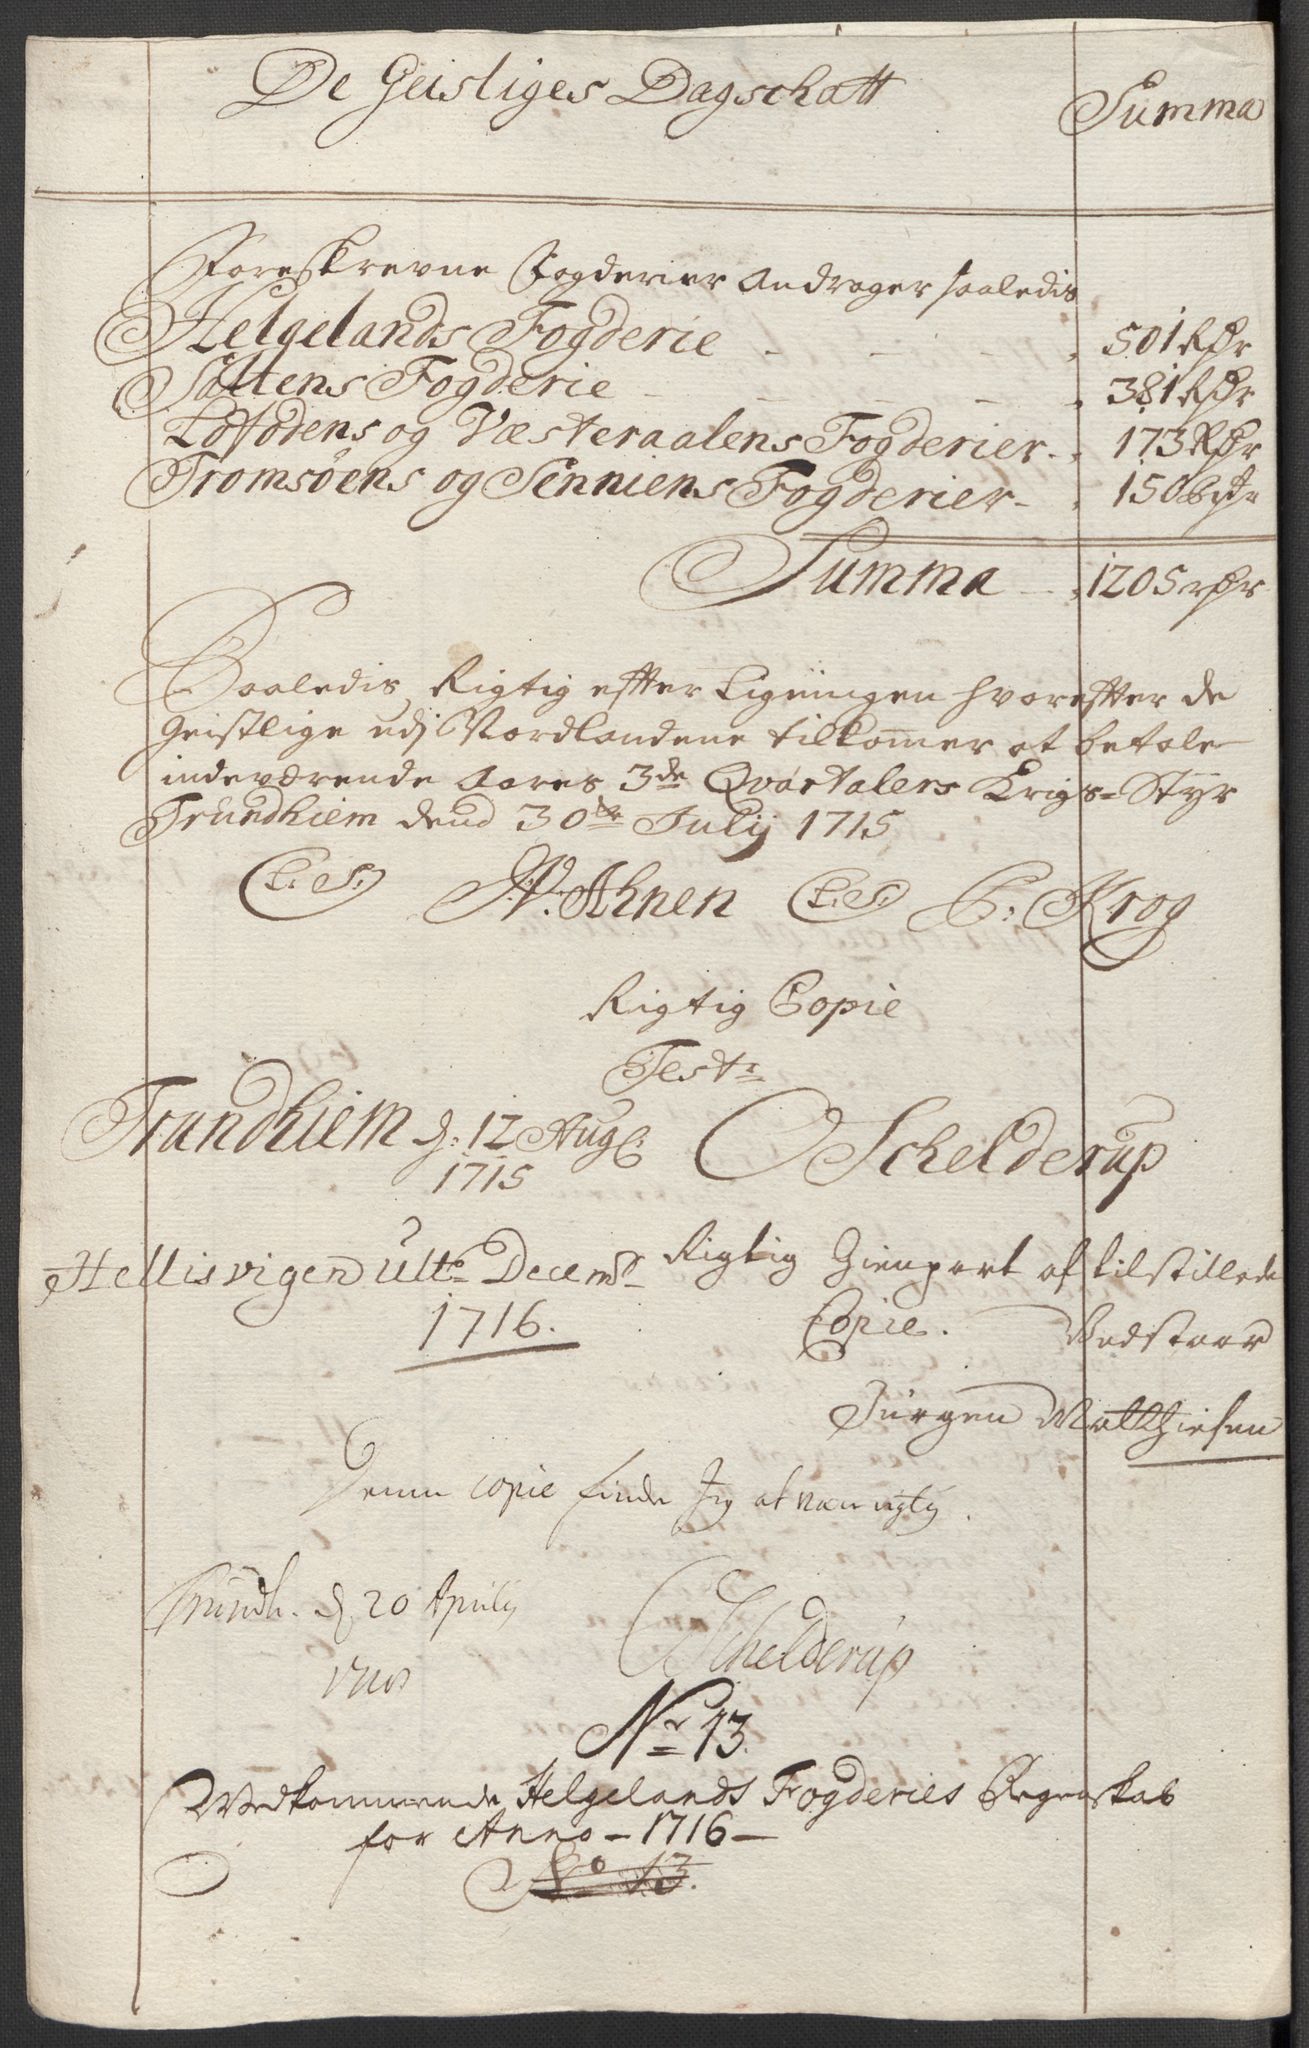 De Geisliges Dagschatt
Summa
Foreskrevne Fogderier Androger saaledis
Helgelands Fogderie - - - - 501 Rdr
Saltens Fogderie - - - - 381 Rdr
Lofodens og Væsteraalens Fogderier - 173 Rdr
Tromsøens og Senniens Fogderier - 150
Summa - 1205 rdr
Saaledis Rigtig effter Ligningen hvoreffter de
Geistlige udj Nordlandene tilkommer at betale
indeværende Aares 3de Qvartalers Krigs=Styr
Trundhiem dend 30te Julij 1715
(L. S.) V. Ahnen (L. S.) C: Krog
Rigtig Copie
Test:
Trundhiem d: 12 Aug:
1715
Schelderup
Hellisvigen Ult: Decembr
1716.
Rigtig Gienpart af tilstillede
Copie. Bedstaar
Jürgen Matthiesen
Denne copie finder Jeg at være rigtig.
Trundh. d 20 Aprily
Schelderup
Nr 13.
Vedkommende Helgelands Fogderies Regenskab
for Anno - 1716 -
No 13.